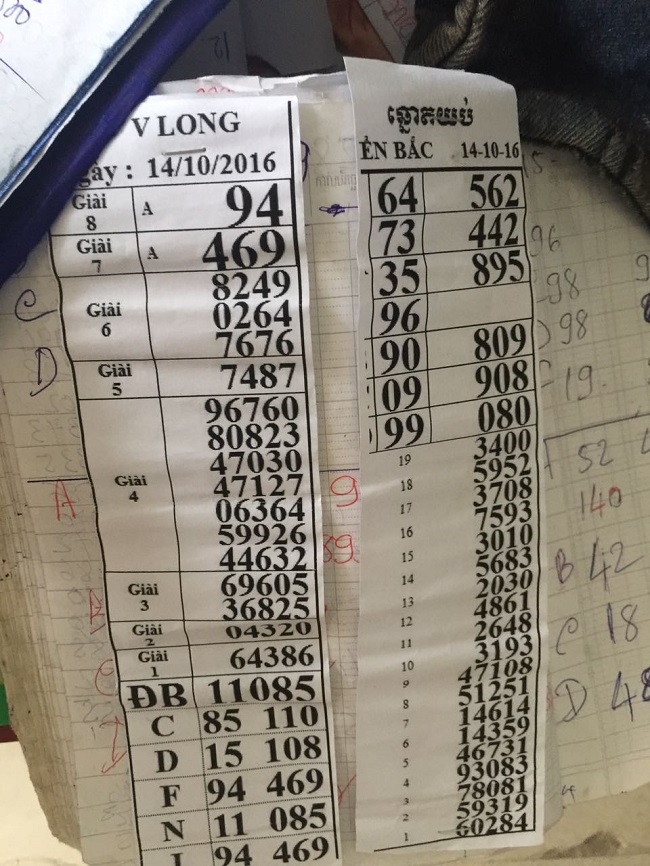 V LONG
gày : 14/10/2016
Giải 8 A 94
Giải 7 A 469
8249
Giải 6 0264
7676
Giải 5 7487
96760
80823
47030
Giải 4 47127
06364
59926
44632
Giải 3 69605
36825
Giải 2 04320
Giải 1 64386
ĐB 11085
C 85 110
D 15 108
F 94 469
N 11 085
I 94 469
ឆ្នោតយប់
ỀN BẮC 14-10-16
64 562
73 442
35 895
96
90 809
09 908
99 080
19 3400
5952
18 3708
17 7593
16 3010
15 5683
14 2030
13 4861
12 2648
11 3193
10 47108
9 51251
8 14614
7 14359
6 46731
5 93083
4 78081
3 59319
2 60284
1
C
D
A
9
39
96
98
98
19.
52
140
B 42
C 18
D 48